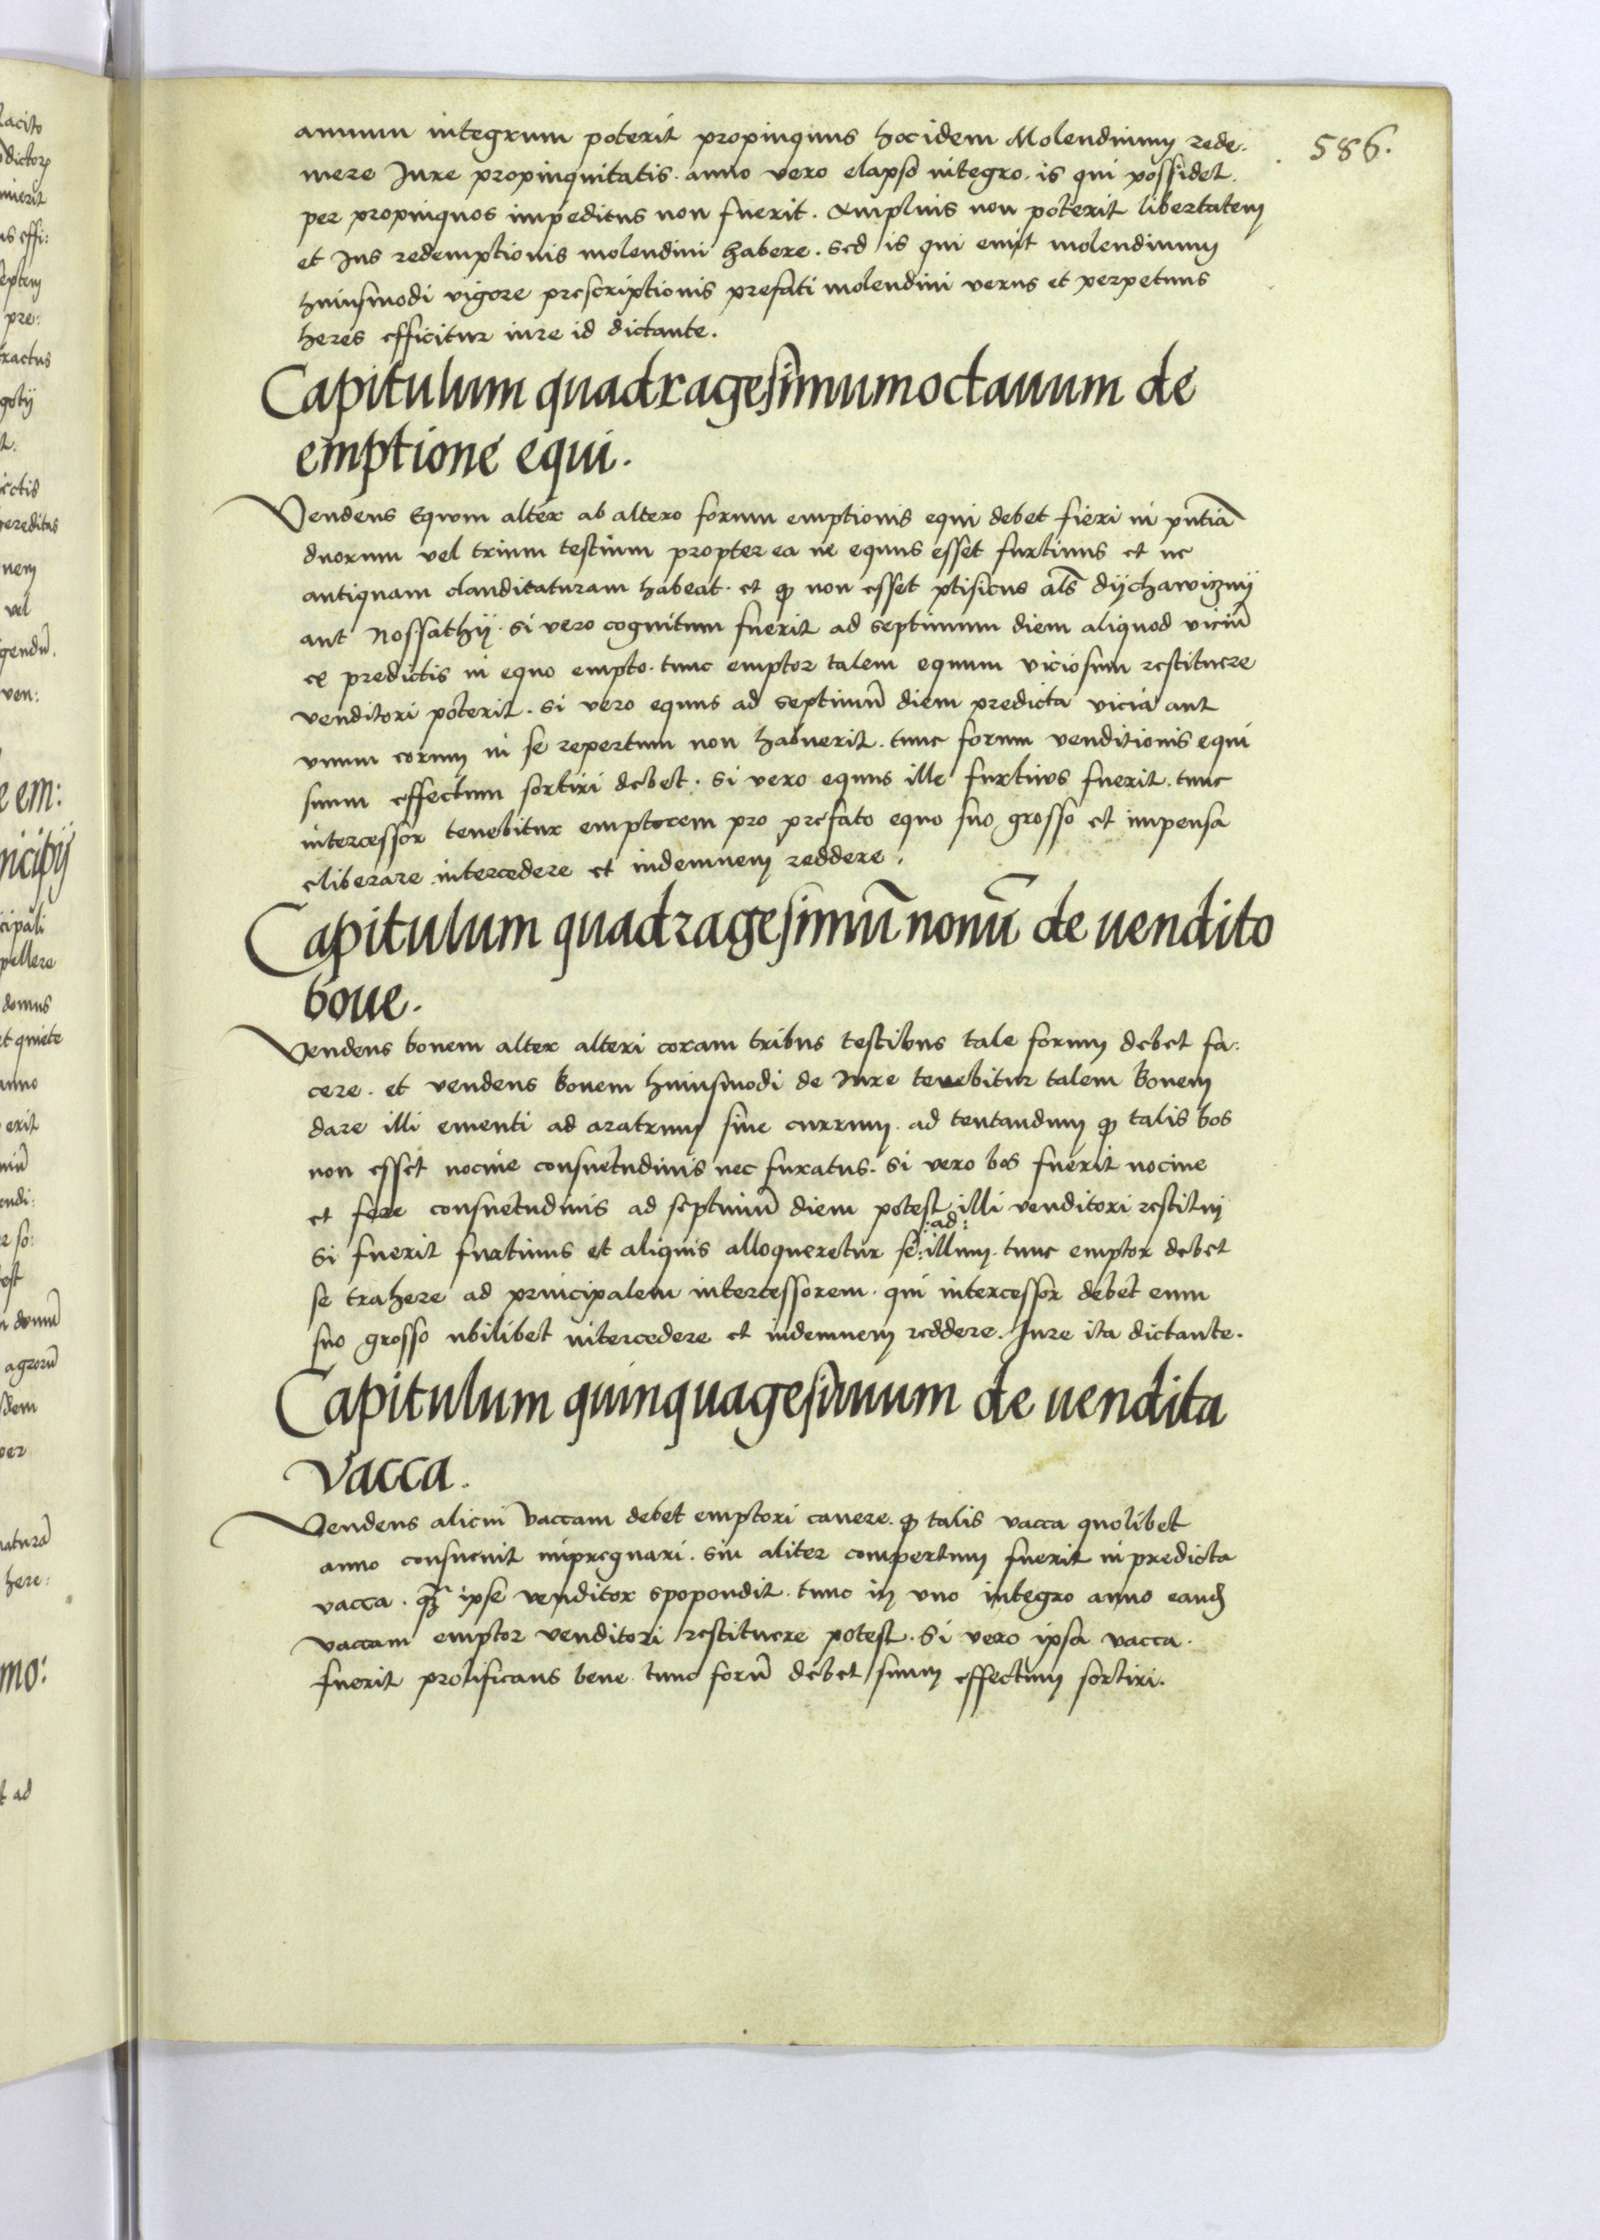 586.
annum integrum poterit propinquus hoc idem Molendinum rede.
mere Iure propinquitatis. anno vero elapso integro. is qui possidet.
per propinquos impeditus non fuerit. Amplius non poterit libertatem
et Ius redemptionis molendini habere. sed is qui emit molendinum
huiusmodi vigore prescriptionis prefati molendini verus et perpetuus
heres efficitur iure id dictante.
Capitulum quadragesimumoctauum de
emptione equi.
Vendens Equum alter ab altero forum emptionis equi debet fieri in pñtia
duorum vel trium testium propter ea ne equus esset furtiuus et ne
antiquam clauditaturam habeat. et ꝙ non esset ptisicus als̃ dijchawiznij
aut Nossathij. si vero cognitum fuerit ad septimum diem aliquod viciũ
ex predictis in equo empto. tunc emptor talem equum viciosum restituere
venditori poterit. si vero equus ad septimũ diem predicta vicia aut
vnum eorum in se repertum non habuerit. tunc forum venditionis equi
suum effectum sortiri debet. si vero equus ille furtiuos fuerit. tunc
intercessor tenebitur emptorem pro prefato equo suo grosso et impensa
eliberare intercedere et indemnem reddere.
Capitulum quadragesimũ nonũ de uendito
boue.
Vendens bouem alter alteri coram tribus testibus tale forum debet fa:
cere. et vendens bouem huiusmodi de Iure tenebitur talem bouem
dare illi ementi ad aratrum siue currum. ad tentandum ꝙ talis bos
non esset nociue consuetudinis nec furatus. si vero bos fuerit nociue
et fere consuetudinis ad septimũ diem potest illi venditori restitui
si fuerit furtiuus et aliquis alloqueretur se :ad: illum. tunc emptor debet
se trahere ad principalem intercessorem. qui intercessor debet eum
suo grosso ubilibet intercedere et indemnem reddere. Iure ita dictante.
Capitulum quinquagesimum de uendita
vacca.
Vendens alicui vaccam debet emptori cauere. ꝙ talis vacca quolibet
anno consueuit impregnari. sin aliter compertum fuerit in predicta
vacca. ipse venditor spopondit. tunc in vno integro anno eand̃
vaccam emptor venditori restituere potest. si vero ipsa vacca.
fuerit prolificans bene. tunc forũ debet suum effectum sortiri.